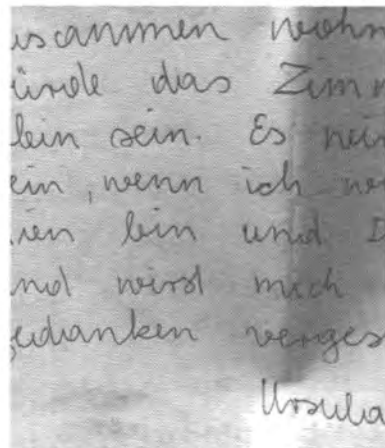 usammen wohn
ürde das Zimm
lein sein. Es
ein, wenn ich
ien bin und D
nd wird mich
edanken verges
Ursula